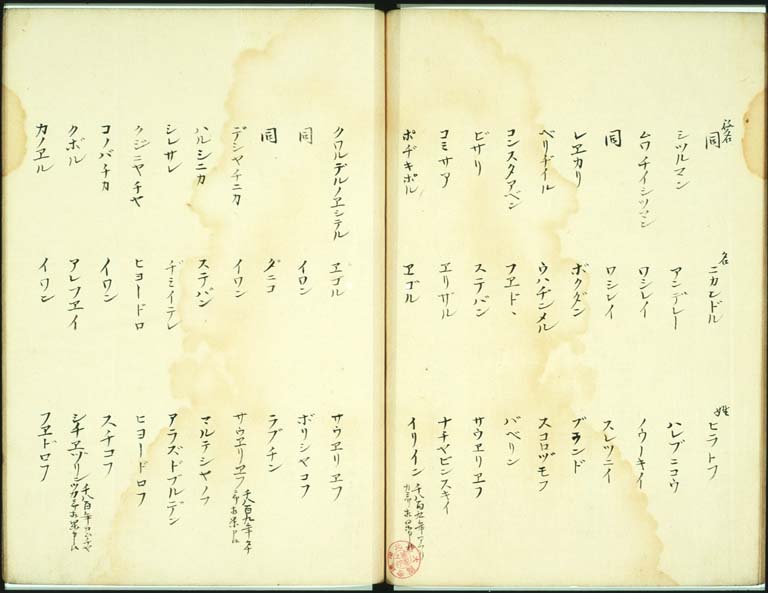 役名 同 名 ニカンドル 姓 ヒラトフ
シツルマン アンデレー ハレブニコウ
ムワチイシツマン ワシレイ ノウーキイ
同 ワシレイ スレツニイ
レヱカリ ボクダン ブランド
ベリヂイル ウハチンメル スコロヅモフ
コンスタアベン フヱド、 バベリン
ビサリ ステパン サウヱリヱフ
コミサア ヱリザル ナチヤピンスキイ
ポヂキポル ヱゴル イリイン
クワルデルノヱシテル ヱゴル サウヱリヱフ
同 イワン ボリシヤコフ
同 ダニコ ラプチン
デシヤチニカ イワン サウヱリヱフ 千八百九年
ハルシニカ ステパン マルテシヤノフ
シレサレ ヂミイテレ アラズドブルデン
クジニヤチヤ ヒヨードロ ヒヨードロフ
コノバチカ イワン スチコフ
クボル アレフヱイ シチヱヅリン 千八百年
カノヱル イワン フヱドロフ